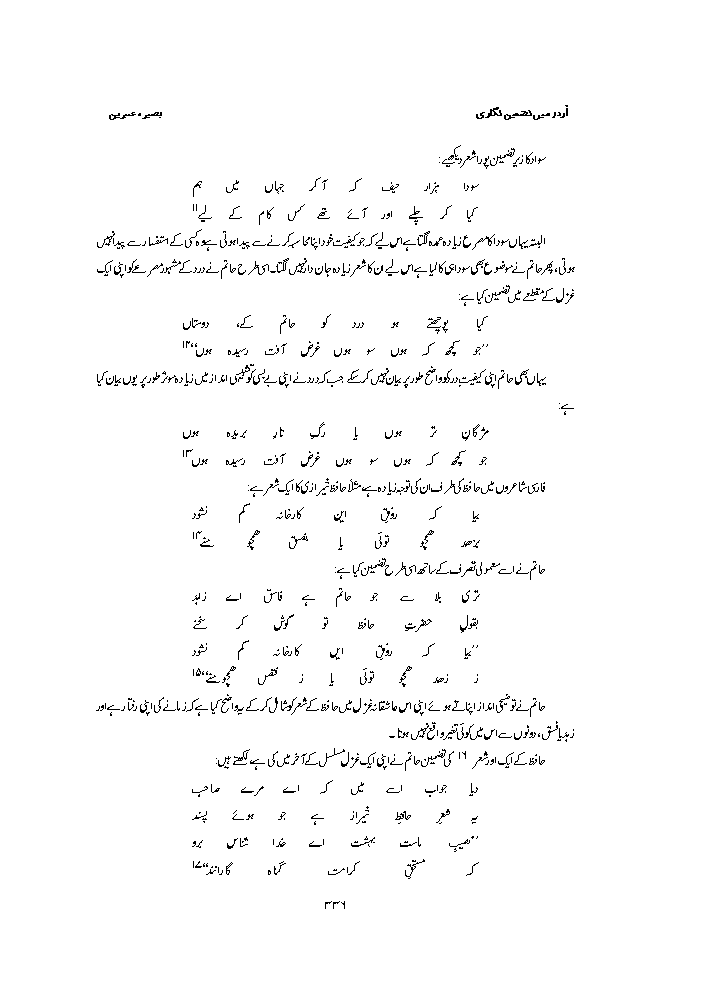 اُردو میں تضمین نگاری
بصیرہ عنبرین
سودا کا زیرِ تضمین پورا شعر دیکھیے:
سودا ہزار حیف کہ آکر جہاں میں ہم
کیا کر چلے اور آئے تھے کس کام کے لیے ۱۱
البتہ یہاں سودا کا مصرع زیادہ عمدہ لگتا ہے اس لیے کہ جو کیفیت خود اپنا محاسبہ کرنے سے پیدا ہوتی ہے وہ کسی کے استفسار سے پیدا نہیں
ہوتی، پھر حاتم نے موضوع بھی سودا ہی کا لیا ہے اس لیے ان کا شعر زیادہ جان دار نہیں لگتا۔ اسی طرح حاتم نے درد کے مشہور مصرعے کو اپنی ایک
غزل کے مقطعے میں تضمین کیا ہے:
کیا پوچھتے ہو درد کو حاتم کے، دوستاں
’’جو کچھ کہ ہوں سو ہوں غرض آفت رسیدہ ہوں‘‘ ۱۲
یہاں بھی حاتم اپنی کیفیتِ درد کو واضح طور پر بیان نہیں کر سکے جب کہ درد نے اپنی بے بسی کو تمثیلی انداز میں زیادہ موثر طور پر یوں بیان کیا
ہے:
مژگانِ تر ہوں یا رگِ تاکِ بریدہ ہوں
جو کچھ کہ ہوں سو ہوں غرض آفت رسیدہ ہوں ۱۳
فارسی شاعروں میں حافظ کی طرف ان کی توجہ زیادہ ہے مثلاً حافظ شیرازی کا ایک شعر ہے:
بیا کہ رونقِ این کارخانہ کم نشود
بزھد ھمچو توئی یا بفسق ھمچو منے ۱۴
حاتم نے اسے معمولی تصرف کے ساتھ اسی طرح تضمین کیا ہے:
تری بلا سے جو حاتم ہے فاسق اے زاہد
بقولِ حضرتِ حافظ تو گوش کر سخنے
’’بیا کہ رونقِ ایں کارخانہ کم نشود
ز زھد ھمچو توئی یا ز فسق ھمچو منے‘‘ ۱۵
حاتم نے توضیحی انداز اپناتے ہوئے اپنی اس عاشقانہ غزل میں حافظ کے شعر کو شامل کر کے یہ واضح کیا ہے کہ زمانے کی اپنی رفتار ہے اور
زہد یا فسق، دونوں سے اس میں کوئی تغیر واقع نہیں ہوتا۔
حافظ کے ایک اور شعر ۱۶ کی تضمین حاتم نے اپنی ایک غزلِ مسلسل کے آخر میں کی ہے لکھتے ہیں:
دیا جواب اسے میں کہ اے مرے صاحب
یہ شعرِ حافظِ شیراز ہے جو ہوئے پسند
’’نصیبِ ماست بہشت اے خدا شناس برو
کہ مستحقِ کرامت گناہ گارانند‘‘ ۱۷
۳۳۶